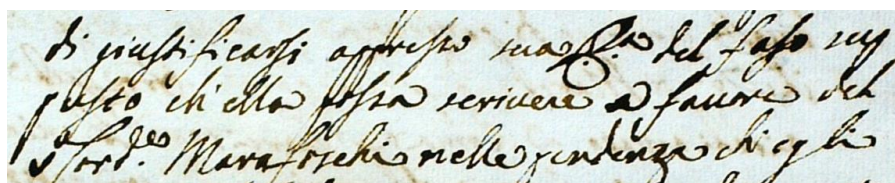 di giustificarsi appresso sua Em.a del falso sup
posto ch'ella possa scrivere a favore del
S.r Card.e Marafoschi nelle pendenza ch'egli